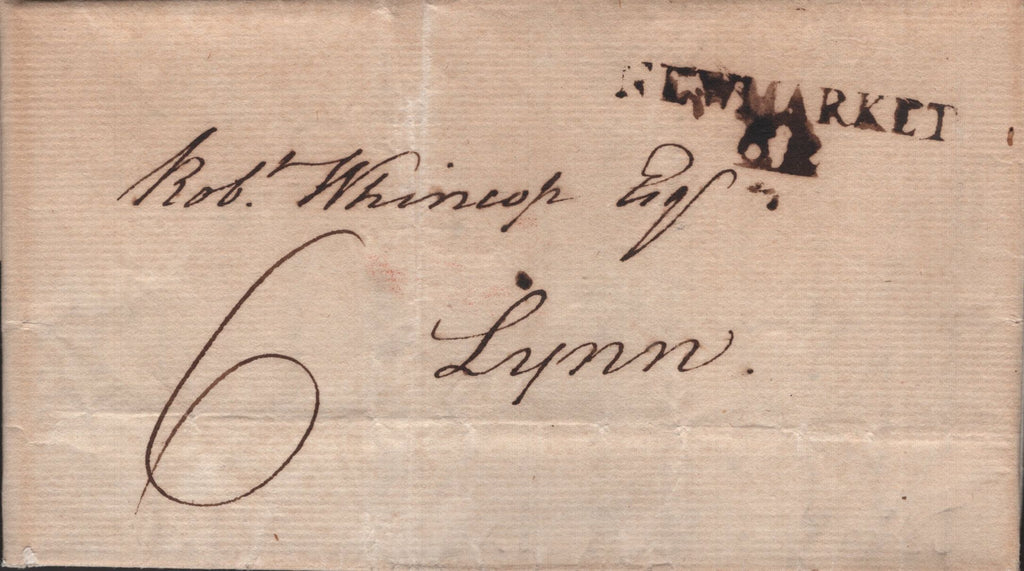 NEWMARKET
Robt. Whincop Esqr
Lynn.
6